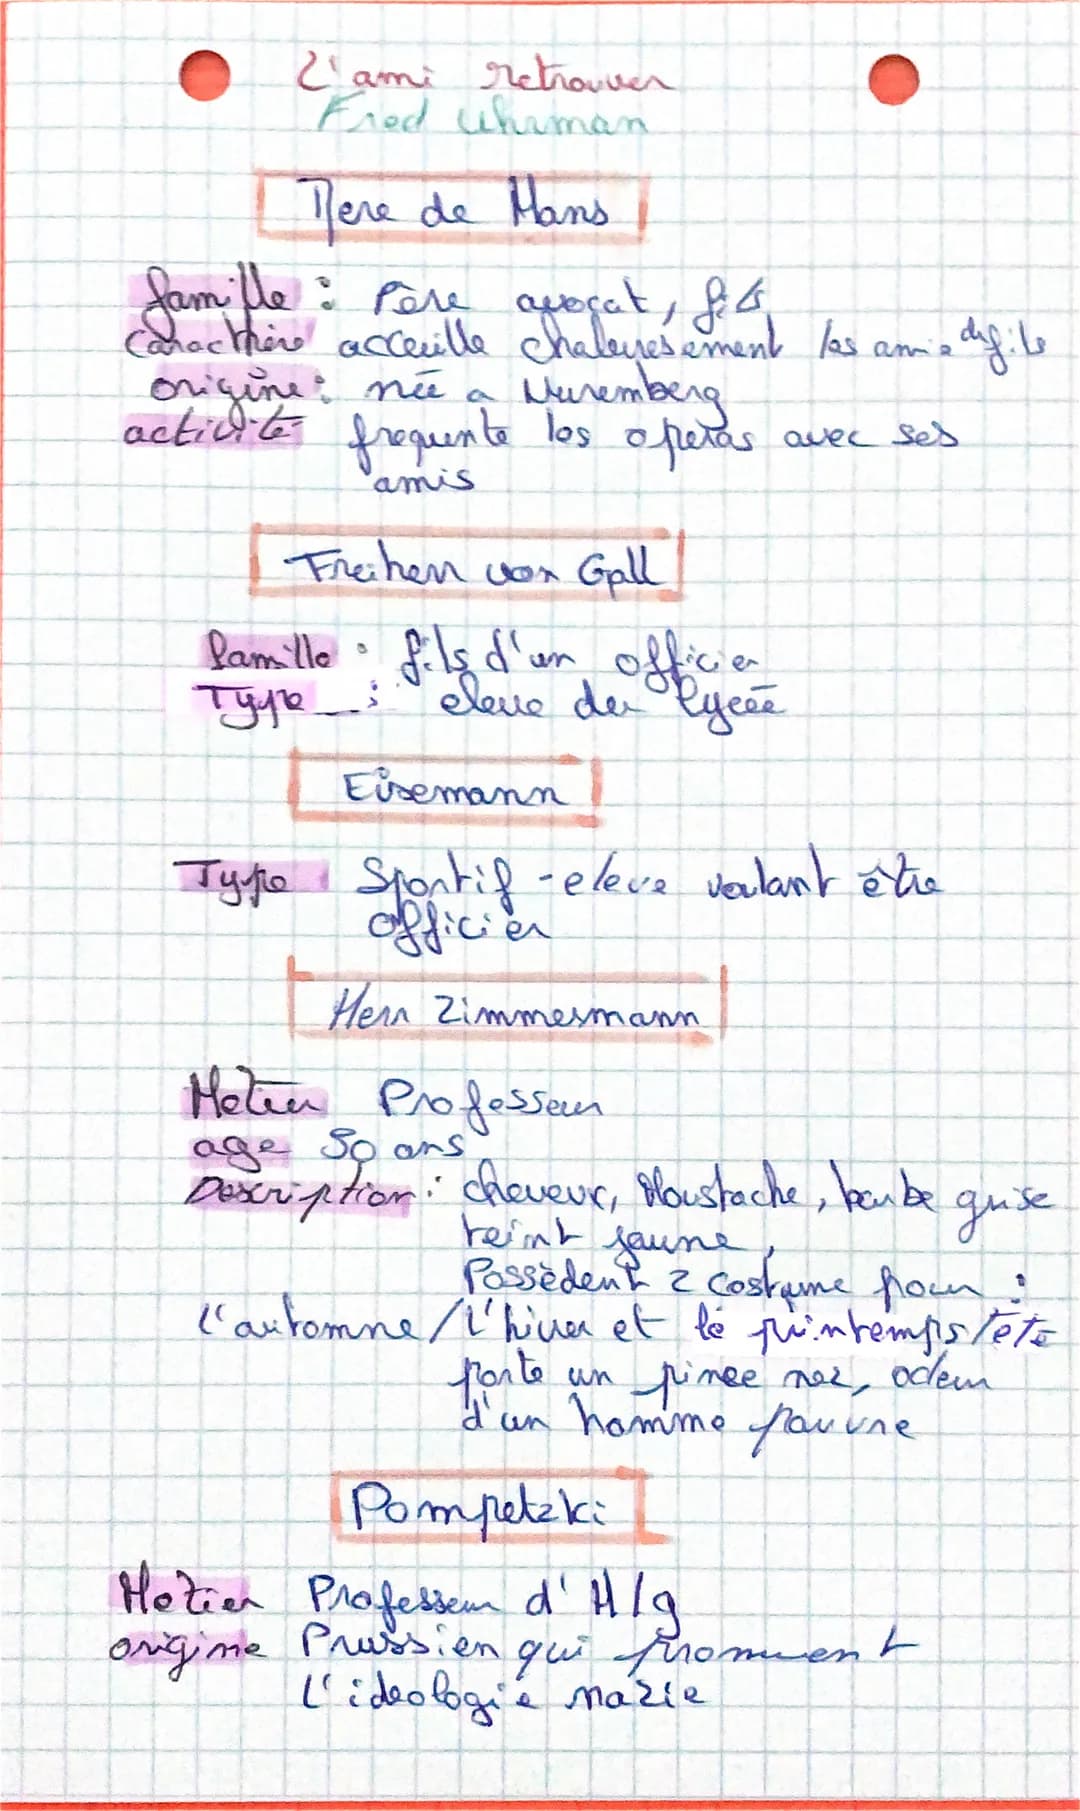 L'ami retrouver
Fred Uhrman
Mere de Hans
famille : Père avocat, fils
Caracthère acceuille chaleuresement les amis du fils
origine : née a Nuremberg
activité frequente les operas avec ses
amis
Freiherr von Gall
famille : fils d'un officier
Type : eleve du lyceé
Eisemann
Type Sportif - eleve voulant être
officier
Herr Zimmermann
Metier Professeur
age 50 ans
Description : cheveux, Moustache, barbe grise
teint jaune,
Possèdent 2 costume pour :
l'automne / l'hiver et le printemps / été
porte un pince nez, odeur
d'un homme pauvre
Pompetzki
Metier Professeur d'H/g
origine Prussien qui promuent
l'ideologie nazie